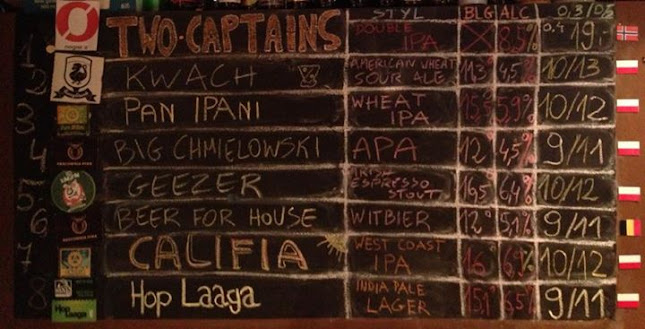 STYL BLG ALC 0,3/0,5
TWO·CAPTAINS DOUBLE IPA 8,5% 0.4 19.-
1 KWACH AMERICAN WHEAT SOUR ALE 11,3° 4,5% 10/13
2
3 PAN IPANI WHEAT IPA 5,9% 10/12
4 BIG CHMIELOWSKI APA 12° 4,5% 9/11
5 GEEZER IRISH ESPRESSO STOUT 16,5 6,4% 10/12
6 BEER FOR HOUSE WITBIER 12° 5,1% 9/11
7 CALIFIA WEST COAST IPA 16 6,9% 10/12
8 HOP LAAGA INDIA PALE LAGER 15,1 6,5% 9/11
Hop Laaga